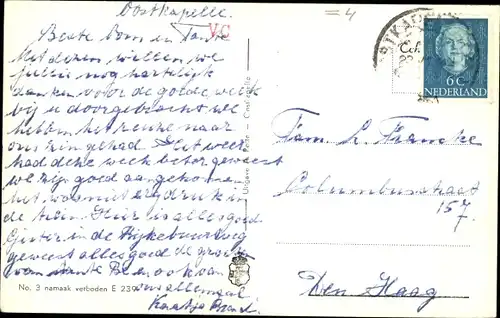 Oostkapelle.
Beste Oom en Tante
Met dezen willen we
jullie nog hartelijk
danken voor de goede week
bij u doorgebracht we
hebben het reuze naar
ons zin gehad. Het weer
had deze week beter geweest
we zijn goed aangekomen
het was niet erg druk in
de trein. Hier is alles goed
in de
geweest alles goed de groeten
van tante ook van
ons allemaal
Kaatje
No. 3 namaak verboden E 239
VC
=4
6 C
NEDERLAND
Fam. L. Francke
Columbusstraat
157.
Den Haag